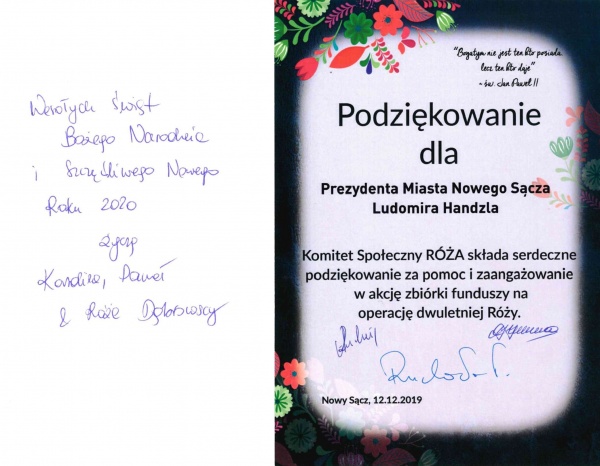 Wesołych Świąt
Bożego Narodzenia
i Szczęśliwego Nowego
Roku 2020
życzą
Karolina, Paweł
& Róża Dąbrowscy
"Bogatym nie jest ten kto posiada
lecz ten kto daje"
~ św. Jan Paweł II
Podziękowanie
dla
Prezydenta Miasta Nowego Sącza
Ludomira Handzla
Komitet Społeczny RÓŻA składa serdeczne
podziękowanie za pomoc i zaangażowanie
w akcję zbiórki funduszy na
operację dwuletniej Róży.
Nowy Sącz, 12.12.2019